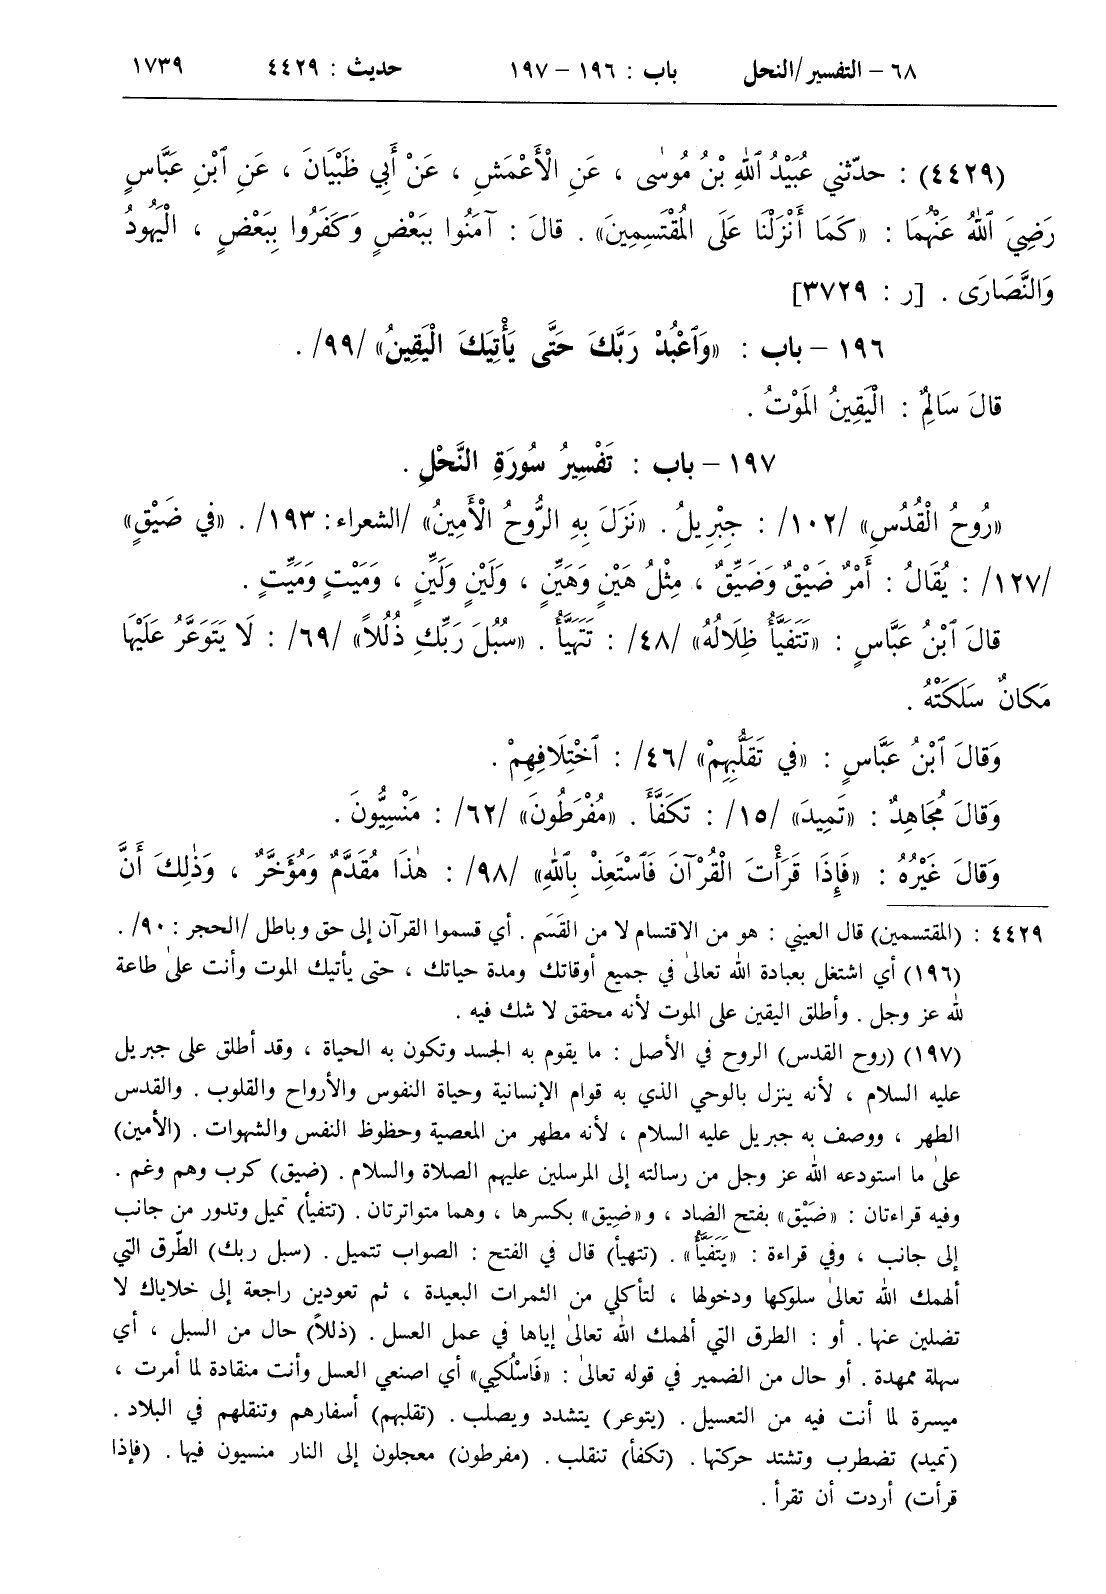 ٦٨ - التفسير/النحل باب : ١٩٦ - ١٩٧ حديث : ٤٤٢٩ ١٧٣٩
(٤٤٢٩) : حدّثني عُبَيْدُ ٱللهِ بْنُ مُوسٰى ، عَنِ الْأَعْمَشِ ، عَنْ أَبِي ظَبْيَانَ ، عَنِ ٱبْنِ عَبَّاسٍ
رَضِيَ ٱللهُ عَنْهُمَا : «كَمَا أَنْزَلْنَا عَلَى المُقْتَسِمِينَ» . قالَ : آمَنُوا بِبَعْضٍ وَكَفَرُوا بِبَعْضٍ ، الْيَهُودُ
وَالنَّصَارَى . [ر : ٣٧٢٩]
١٩٦ - باب : «وَٱعْبُدْ رَبَّكَ حَتَّى يَأْتِيَكَ الْيَقِينُ» /٩٩/ .
قالَ سَالِمٌ : الْيَقِينُ المَوْتُ .
١٩٧ - باب : تَفْسِيرُ سُورَةِ النَّحْلِ .
«رُوحُ الْقُدُسِ» /١٠٢/ : جِبْرِيلُ . «نَزَلَ بِهِ الرُّوحُ الْأَمِينُ» /الشعراء: ١٩٣/ . «في ضَيْقٍ»
/١٢٧/ : يُقَالُ : أَمْرٌ ضَيْقٌ وَضَيِّقٌ ، مِثْلُ هَيْنٍ وَهَيِّنٍ ، وَلَيْنٍ وَلَيِّنٍ ، وَمَيْتٍ وَمَيِّتٍ .
قالَ ٱبْنُ عَبَّاسٍ : «تَتَفَيَّأُ ظِلَالُهُ» /٤٨/ : تَتَهَيَّأُ . «سُبُلَ رَبِّكِ ذُلُلاً» /٦٩/ : لَا يَتَوَعَّرُ عَلَيْهَا
مَكانٌ سَلَكَتْهُ .
وَقالَ ٱبْنُ عَبَّاسٍ : «في تَقَلُّبِهِمْ» /٤٦/ : ٱخْتِلَافِهِمْ .
وَقالَ مُجَاهِدٌ : «تَمِيدَ» /١٥/ : تَكَفَّأُ . «مُفْرَطُونَ» /٦٢/ : مَنْسِيُّونَ .
وَقالَ غَيْرُهُ : «فَإِذَا قَرَأْتَ الْقُرْآنَ فَٱسْتَعِذْ بِٱللهِ» /٩٨/ : هٰذَا مُقَدَّمٌ وَمُؤَخَّرٌ ، وَذٰلِكَ أَنَّ
٤٤٢٩ : (المقتسمين) قال العيني : هو من الاقتسام لا من القَسَم . أي قسموا القرآن إلى حق وباطل /الحجر : ٩٠/ .
(١٩٦) أي اشتغل بعبادة الله تعالىٰ في جميع أوقاتك ومدة حياتك ، حتى يأتيك الموت وأنت علىٰ طاعة
لله عز وجل . وأطلق اليقين على الموت لأنه محقق لا شك فيه .
(١٩٧) (روح القدس) الروح في الأصل : ما يقوم به الجسد وتكون به الحياة ، وقد أطلق على جبريل
عليه السلام ، لأنه ينزل بالوحي الذي به قوام الإنسانية وحياة النفوس والأرواح والقلوب . والقدس
الطهر ، ووصف به جبريل عليه السلام ، لأنه مطهر من المعصية وحظوظ النفس والشهوات . (الأمين)
علىٰ ما استودعه الله عز وجل من رسالته إلى المرسلين عليهم الصلاة والسلام . (ضيق) كرب وهم وغم .
وفيه قراءتان : «ضَيْق» بفتح الضاد ، و«ضِيق» بكسرها ، وهما متواترتان . (تتفيأ) تميل وتدور من جانب
إلى جانب ، وفي قراءة : «يَتَفَيَّأُ» . (تتهيأ) قال في الفتح : الصواب تتميل . (سبل ربك) الطّرق التي
ألهمك الله تعالىٰ سلوكها ودخولها ، لتأكلي من الثمرات البعيدة ، ثم تعودين راجعة إلى خلاياك لا
تضلين عنها . أو : الطرق التي ألهمك الله تعالىٰ إياها في عمل العسل . (ذللاً) حال من السبل ، أي
سهلة ممهدة . أو حال من الضمير في قوله تعالىٰ : «فَاسْلُكِي» أي اصنعي العسل وأنت منقادة لما أمرت ،
ميسرة لما أنت فيه من التعسيل . (يتوعر) يتشدد ويصلب . (تقلبهم) أسفارهم وتنقلهم في البلاد .
(تميد) تضطرب وتشتد حركتها . (تكفأ) تنقلب . (مفرطون) معجلون إلى النار منسيون فيها . (فإذا
قرأت) أردت أن تقرأ .